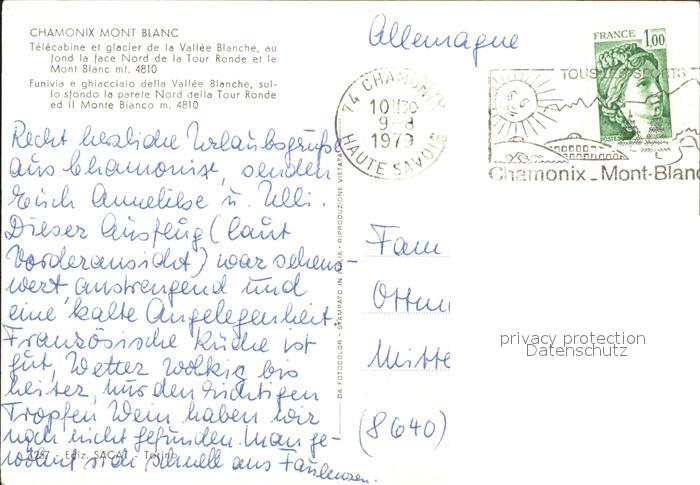 CHAMONIX MONT BLANC
Télécabine et glacier de la Vallée Blanche, au
fond la face Nord de la Tour Ronde et le
Mont Blanc mt. 4810
Funivia e ghiacciaio della Vallée Blanche, sul-
lo sfondo la parete Nord della Tour Ronde
ed il Monte Bianco m. 4810
Recht herzliche Urlaubsgrüße
aus Chamonix, senden
Euch Anneliese u. Ulli.
Dieser Ausflug (laut
Vorderansicht) war sehens-
wert, anstrengend und
eine kalte Angelegenheit.
Französische Küche ist
gut, Wetter wolkig bis
heiter, nur den richtigen
Tropfen Wein haben wir
noch nicht gefunden. Man ge-
wöhnt sich schnell ans Faulenzen.
1287 - Ediz. SACAT - Torino
DA FOTOCOLOR - STAMPATO IN ITALIA - RIPRODUZIONE VIETATA
Allemagne
74 CHAMONIX
10H30
9-8
1979
HAUTE SAVOIE
FRANCE 1,00
POSTES
TOUS LES SPORTS
Chamonix_Mont-Blanc
Fam
Ottm
Mitte
(8640)
privacy protection
Datenschutz